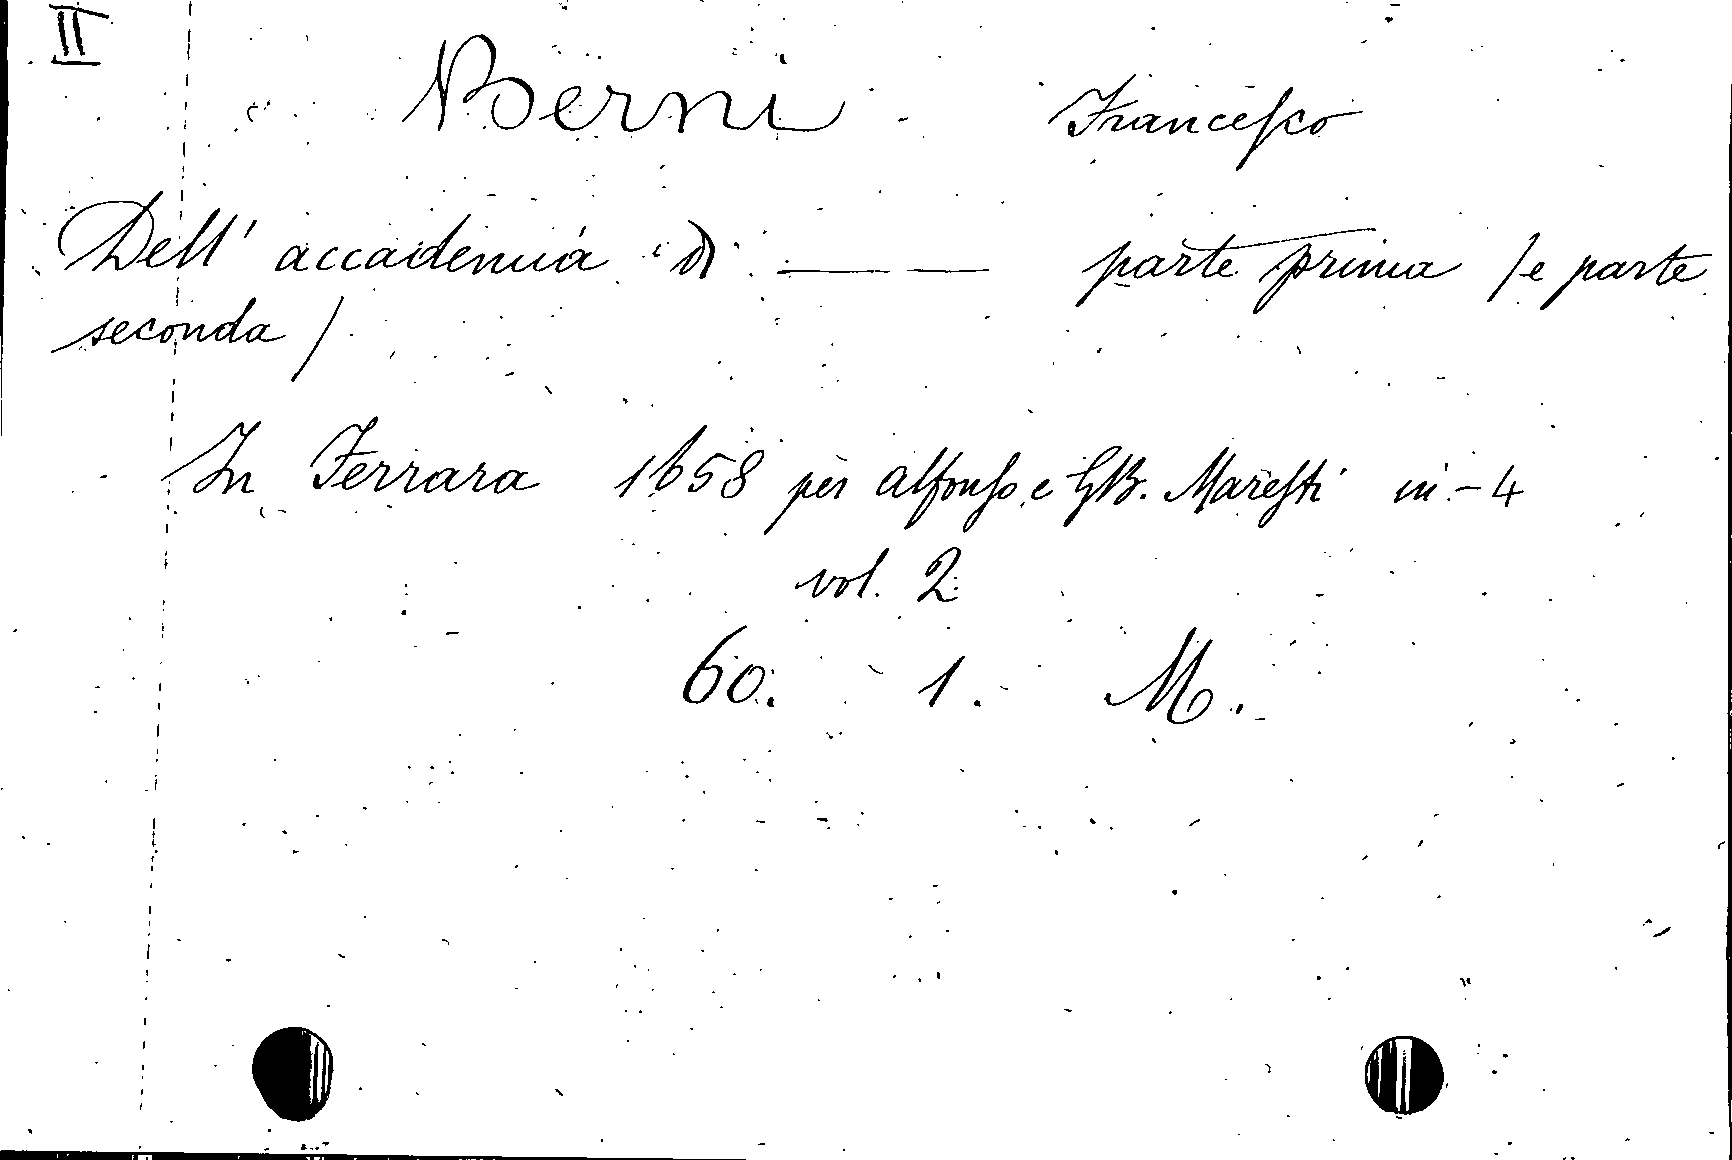 II
Berni Francesco
Dell' accademia di —— — parte prima /e parte
seconda/
In Ferrara 1658 per Alfonso e GB. Maresti in-4
vol. 2
60. 1. M.